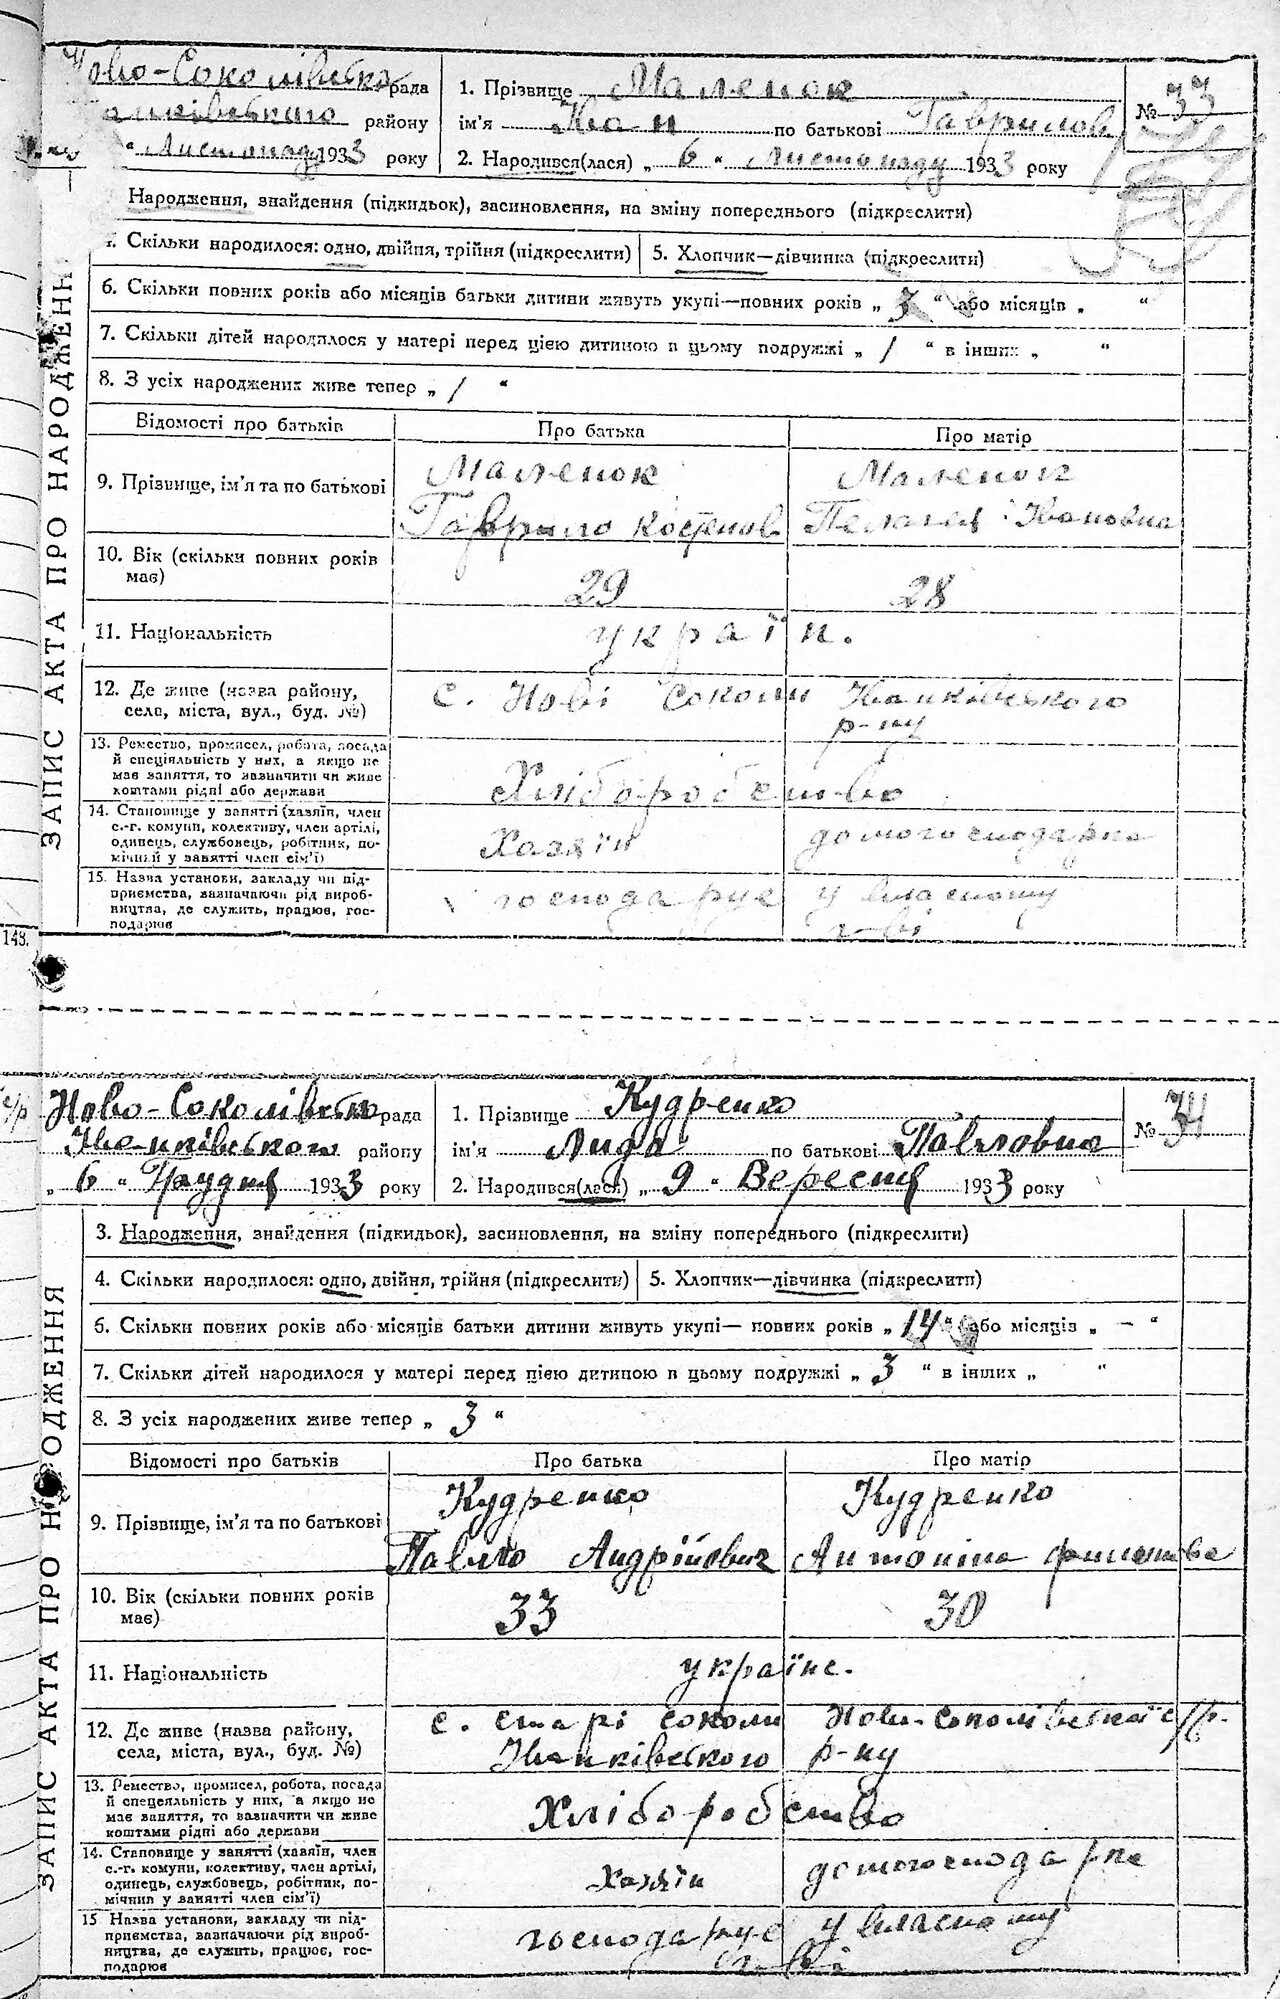 Ново-Соколівська рада
1. Прізвище Маленок
№ 33
Іванківського району
ім'я Іван по батькові Гаврилов
" Листопаду 1933 року
2. Народився(лася) „ 6 " Листопаду 1933 року
Народження, знайдення (підкидьок), засиновлення, на зміну попереднього (підкреслити)
4. Скільки народилося: одно, двійня, трійня (підкреслити)
5. Хлопчик—дівчинка (підкреслити)
6. Скільки повних років або місяців батьки дитини живуть укупі—повних років „ 3 " або місяців „ "
7. Скільки дітей народилося у матері перед цією дитиною в цьому подружжі „ 1 " в інших „ "
8. З усіх народжених живе тепер „ 1 "
ЗАПИС АКТА ПРО НАРОДЖЕНН
Відомості про батьків
Про батька
Про матір
9. Прізвище, ім'я та по батькові
Маленок
Гаврило
Маленок
Пелагея Івановна
10. Вік (скільки повних років має)
29
28
11. Національність
україн.
12. Де живе (назва району, села, міста, вул., буд. №)
с. Нові Соколи Іванківського
р-ну
13. Ремество, промисел, робота, посада
й спеціяльність у них, а якщо не
має заняття, то зазначити чи живе
коштами рідні або держави
Хліборобство
14. Становище у занятті (хазяїн, член
с.-г. комуни, колективу, член артілі,
одинець, службовець, робітник, по-
мічний у занятті член сім'ї)
Хазяїн
домогосподарка
15. Назва установи, закладу чи під-
приємства, зазначаючи рід вироб-
ництва, де служить, працює, гос-
подарює
господарує у власному
г-ві
148.
с/р
Ново-Соколівська рада
1. Прізвище Кудренко
№ 34
Іванківського району
ім'я Лида по батькові Павловна
„ 6 " Грудня 1933 року
2. Народився(лася) „ 9 " Вересня 1933 року
3. Народження, знайдення (підкидьок), засиновлення, на зміну попереднього (підкреслити)
4. Скільки народилося: одно, двійня, трійня (підкреслити)
5. Хлопчик—дівчинка (підкреслити)
6. Скільки повних років або місяців батьки дитини живуть укупі— повних років „ 14 " або місяців „ — "
7. Скільки дітей народилося у матері перед цією дитиною в цьому подружжі „ 3 " в інших „ "
8. З усіх народжених живе тепер „ 3 "
ЗАПИС АКТА ПРО Н ОДЖЕННЯ
Відомості про батьків
Про батька
Про матір
9. Прізвище, ім'я та по батькові
Кудренко
Павло Андрійович
Кудренко
Антоніна
10. Вік (скільки повних років має)
33
30
11. Національність
україне.
12. Де живе (назва району, села, міста, вул., буд. №)
с. Старі Соколи Ново-Соколівської с/р.
Іванківського р-ну
13. Ремество, промисел, робота, посада
й спецеяльність у них, а якщо не
має заняття, то зазначити чи живе
коштами рідні або держави
Хліборобство
14. Становище у занятті (хазяїн, член
с.-г. комуни, колективу, член артілі,
одинець, службовець, робітник, по-
мічний у занятті член сім'ї)
Хазяїн
домогосподарка
15 Назва установи, закладу чи під-
приємства, зазначаючи рід вироб-
ництва, де служить, працює, гос-
подарює
господарує у власному
г-ві